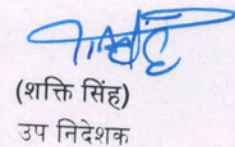 (शक्ति सिंह)
उप निदेशक